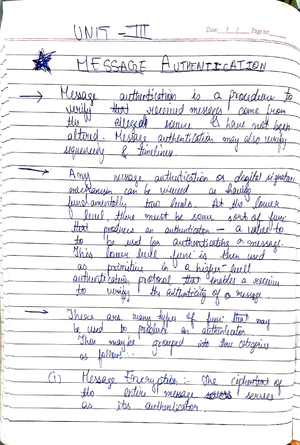 UNIT - III
Date / / Page no.
MESSAGE AUTHENTICATION
→ Message authentication is a procedure to
verify that received messages come from
the alleged source & have not been
altered. Message authentication may also verify
sequencing & timeliness.
→ Any message authentication or digital signature
mechanism can be viewed as having
fundamentally two levels. At the lower
level, there must be some sort of func
that produces an authenticator - a value to
to be used for authenticating a message.
This lower level func is then used
as primitive in a higher-level
authentication protocol that enables a receiver
to verify the authenticity of a message
→ There are many types of func that may
be used to produce an authenticator.
They may be grouped into three categories
as follows:-
(i) Message Encryption :- The ciphertext of
the entire message serves
as its authenticator